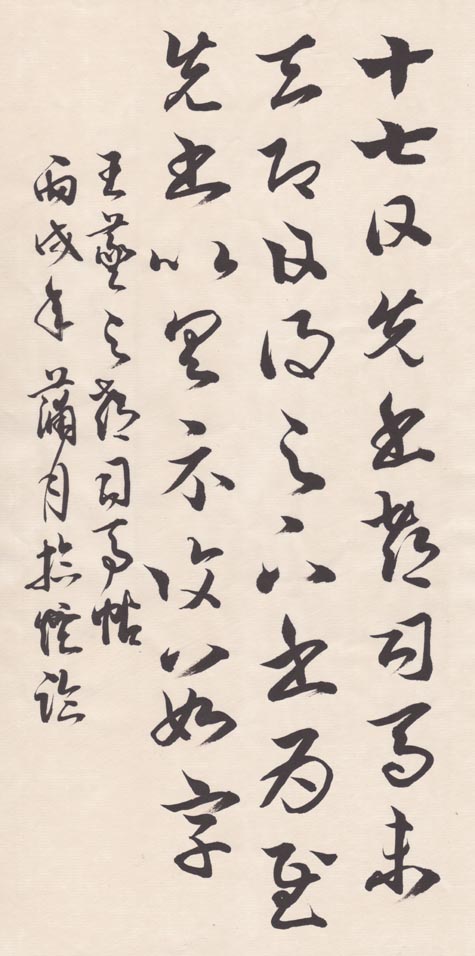 十七日先書郗司馬未
去即日得足下書為慰
先書以具示復數字
王羲之郗司馬帖
丙戌年蒲月於